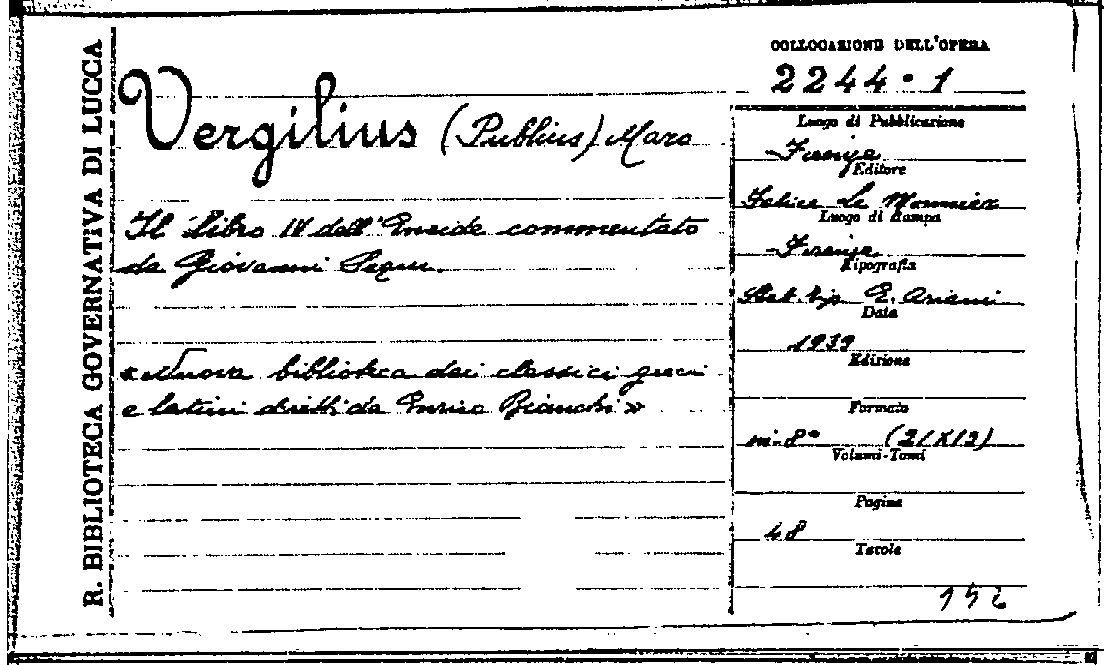 R. BIBLIOTECA GOVERNATIVA DI LUCCA
Vergilius (Publius) Maro
Il libro IV dell'Eneide commentato
da Giovanni
«Nuova biblioteca dei classici greci
e latini diretti da Enrico Bianchi»
COLLOCAZIONE DELL'OPERA
2244·1
Luogo di Pubblicazione
Firenze
Editore
Felice Le Monnier
Luogo di stampa
Firenze
Tipografia
Stab. tip. E. Ariani
Data
1939
Edizione
Formato
in-8° (21X13)
Volumi-Tomi
Pagine
48
Tavole